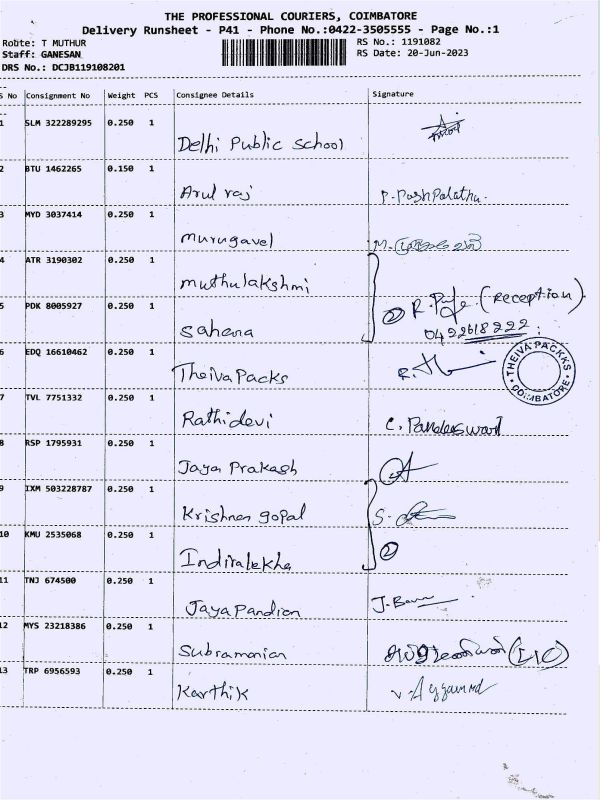 THE PROFESSIONAL COURIERS, COIMBATORE
Delivery Runsheet - P41 - Phone No.:0422-3505555 - Page No.:1
Route: T MUTHUR
RS No.: 1191082
Staff: GANESAN
RS Date: 20-Jun-2023
DRS No.: DCJB119108201
S No Consignment No Weight PCS Consignee Details Signature
1 SLM 322289295 0.250 1
Delhi Public school
2 BTU 1462265 0.150 1
Arul raj P. Pushpalatha.
3 MYD 3037414 0.250 1
murugavel M.
4 ATR 3190302 0.250 1
muthulakshmi
② R. (Reception)
5 PDK 8005927 0.250 1
Sahana 0422618222
6 EDQ 16610462 0.250 1
Theiva Packs R.
THEIVA PACKKS COIMBATORE
7 TVL 7751332 0.250 1
Rathidevi C.
8 RSP 1795931 0.250 1
Jaya Prakash
9 IXM 503228787 0.250 1
Krishnan gopal S.
10 KMU 2535068 0.250 1
Indiralekha ②
11 TNJ 674500 0.250 1
Jaya Pandian J.
12 MYS 23218386 0.250 1
Subramanian
13 TRP 6956593 0.250 1
Karthik V.